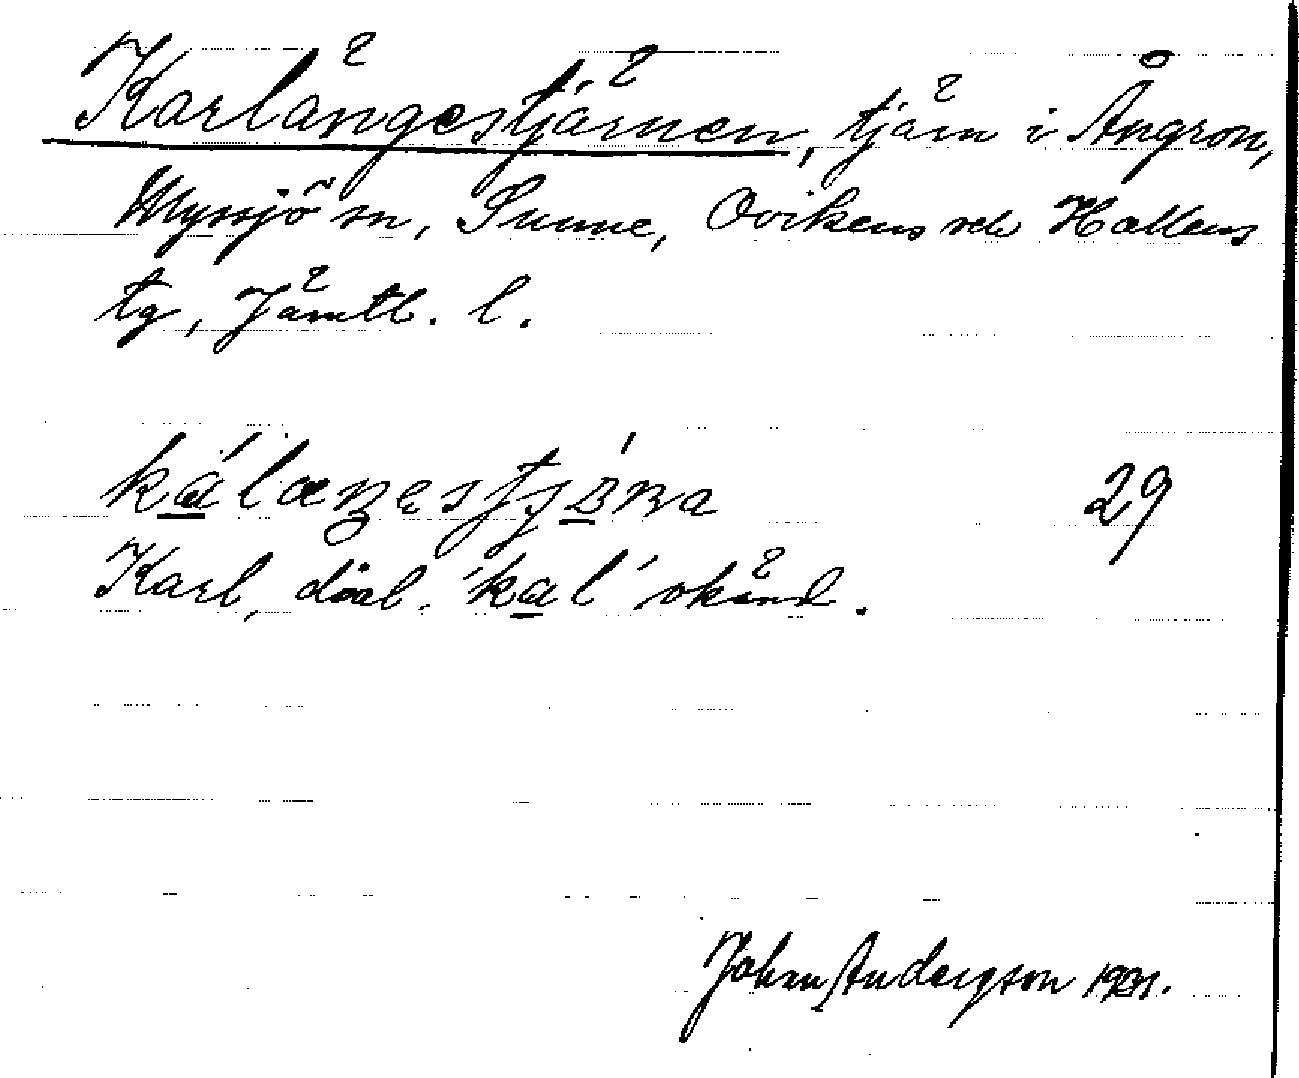 Karlängestjärnen, tjärn i Ångron,
Myssjö sn, Sunne, Ovikens och Hallens
tg, Jämtl. l.
kálæŋestjɔ́ɴa 29
Karl, dial. kal okänd.
Johan Anderson